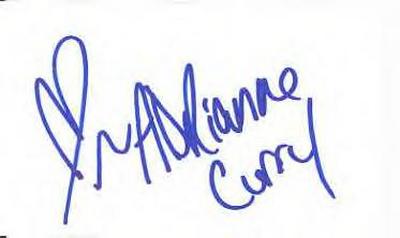 Adrianne
Curry